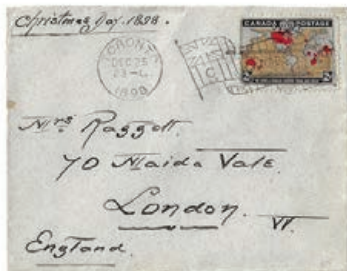 Christmas Day. 1898.
TORONTO
DEC 25
1898
CANADA POSTAGE
Mrs Raggett.
70 Maida Vale.
London. W.
England.